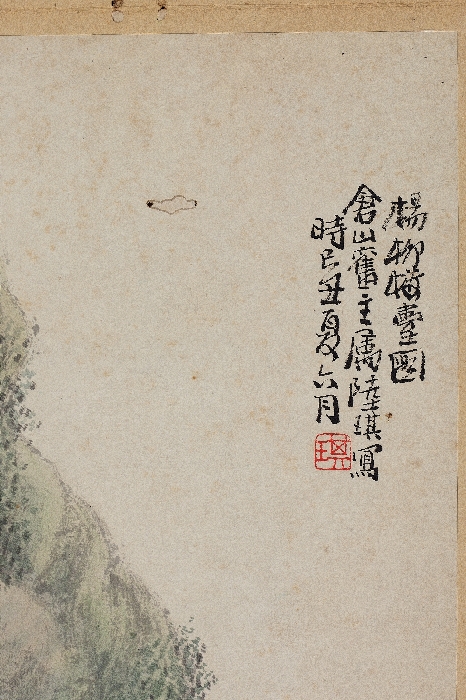 楊柳樓臺圖
倉山舊主屬陸琪寫
時己丑夏六月
琪